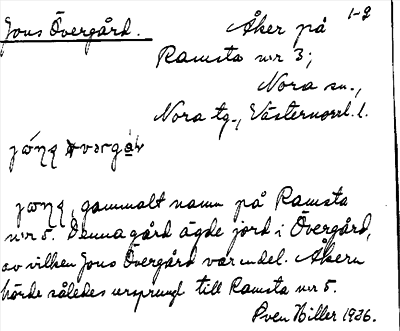 1-2
Jons Övergård.
Åker på
Ramsta nr 3;
Nora sn.,
Nora tg., Västernorrl. l.
gammalt namn på Ramsta
nr 5. Denna gård ägde jord i Övergård,
av vilken Jons Övergård var en del. Åkern
hörde således ursprungl. till Ramsta nr 5.
Sven Hiller 1926.